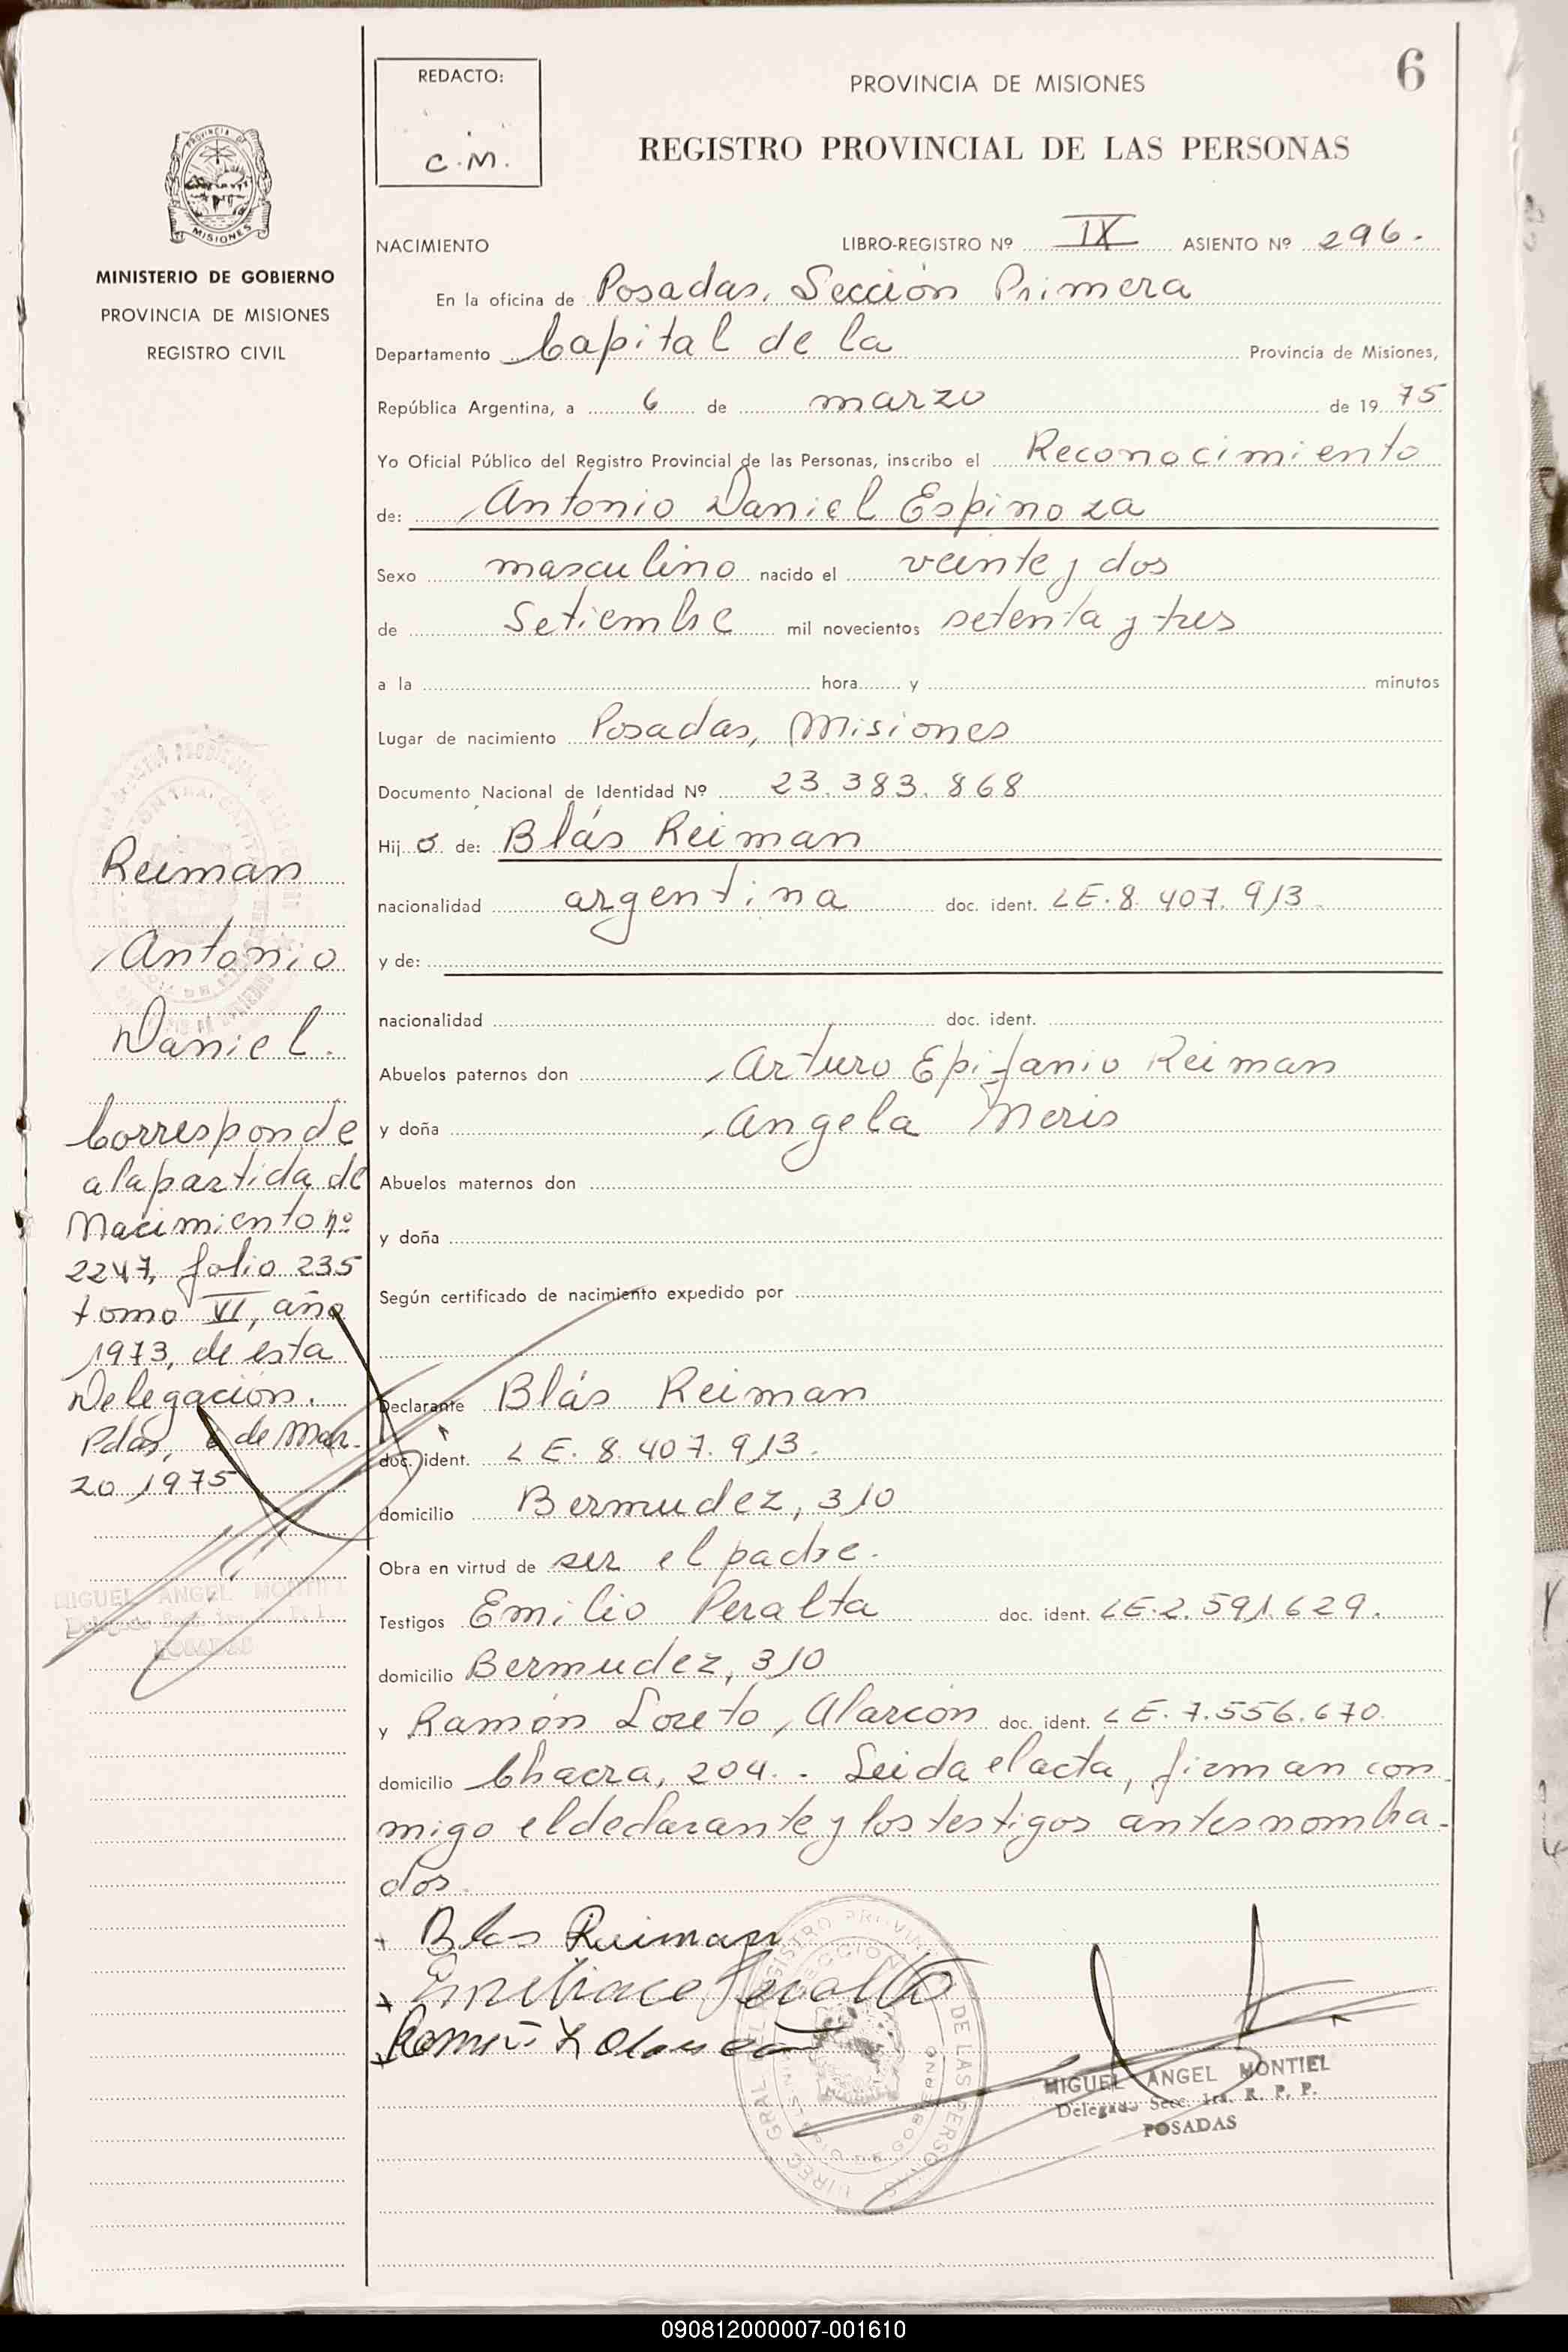 6
REDACTO:
C.M.
PROVINCIA DE MISIONES
REGISTRO PROVINCIAL DE LAS PERSONAS
MISIONES
MINISTERIO DE GOBIERNO
PROVINCIA DE MISIONES
REGISTRO CIVIL
NACIMIENTO LIBRO-REGISTRO Nº IX ASIENTO Nº 296.
En la oficina de Posadas, Sección Primera
Departamento Capital de la Provincia de Misiones,
República Argentina, a 6 de marzo de 19 75
Yo Oficial Público del Registro Provincial de las Personas, inscribo el Reconocimiento
de: Antonio Daniel Espinoza
Sexo masculino nacido el veinte y dos
de Setiembre mil novecientos setenta y tres
a la hora y minutos
Lugar de nacimiento Posadas, Misiones
Documento Nacional de Identidad Nº 23.383.868
Hij o de: Blás Reiman
nacionalidad argentina doc. ident. LE.8.407.913
y de:
nacionalidad doc. ident.
Abuelos paternos don Arturo Epifanio Reiman
y doña Angela Meris
Abuelos maternos don
y doña
Según certificado de nacimiento expedido por
Declarante Blás Reiman
doc. ident. LE. 8.407.913.
domicilio Bermudez, 310
Obra en virtud de ser el padre.
Testigos Emilio Peralta doc. ident. LE.2.591.629.
domicilio Bermudez, 310
y Ramón Loreto Alarcón doc. ident. LE.7.556.670.
domicilio Chacra, 204. - Leida el acta, firman con
migo el declarante y los testigos antes nombra-
dos.
Blas Reiman
MIGUEL ANGEL MONTIEL
Delegado Secc. 1ra. R. P. P.
POSADAS
Reiman
Antonio
Daniel.
Corresponde
a la partida de
Nacimiento nº
2247, folio 235
tomo VI, año
1973, de esta
Delegación.
Pdas, 6 de Mar-
zo 1975
MIGUEL ANGEL MONTIEL
POSADAS
090812000007-001610